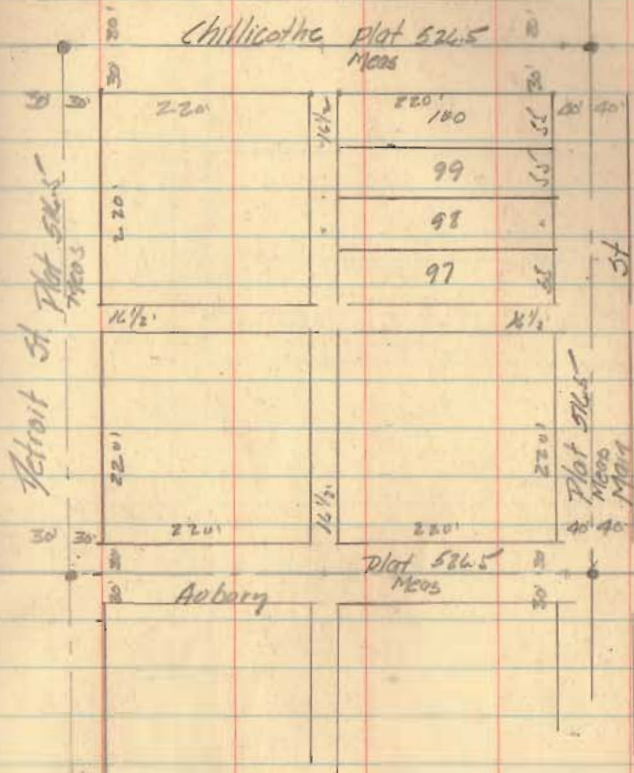 30'
Chillicothe plat 526.5
Meas
30'
30'
30' 30'
220'
16 1/2
220'
100
55
40' 40'
99
55
220'
98
97
55
Detroit St. Plat 516.5
Meas
St
16 1/2'
16 1/2'
220'
16 1/2'
220'
Plat 516.5
Meas
Main
30' 30'
220'
220'
40' 40'
30'
plat 526.5
Meas
30'
30'
Aubory
30'